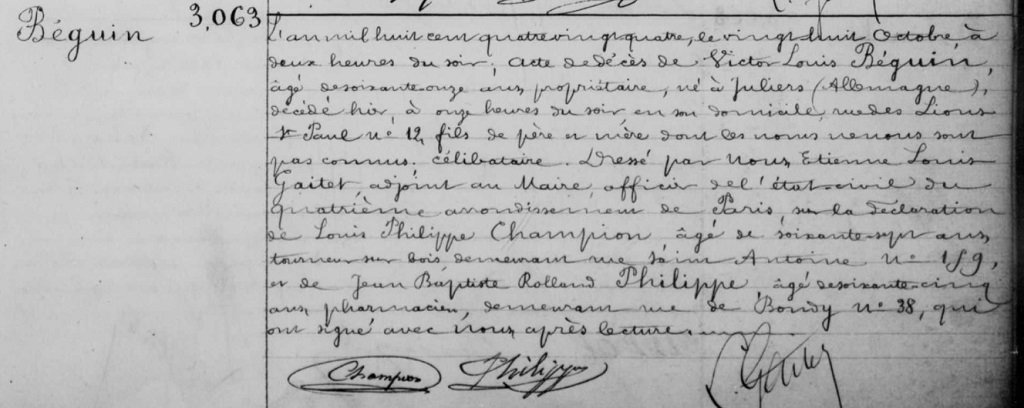 3,063
Béguin
L'an mil huit cent quatre vingt quatre, le vingt huit Octobre, à
deux heures du soir, acte de décès de Victor Louis Béguin,
âgé de soixante-onze ans, propriétaire, né à Juliers (Allemagne),
décédé hier, à onze heures du soir, en son domicile, rue des Lions
St Paul n° 12, fils de père et mère dont les noms ne nous sont
pas connus. célibataire. Dressé par Nous, Etienne Louis
Gaitet, adjoint au Maire, officier de l'état-civil du
quatrième arrondissement de Paris, sur la déclaration
de Louis Philippe Champion, âgé de soixante-sept ans,
tourneur sur bois demeurant rue Saint Antoine n° 159,
et de Jean Baptiste Rolland Philippe, âgé de soixante-cinq
ans, pharmacien, demeurant rue de Bondy n° 38, qui
ont signé avec Nous après lecture.
Champion Philippe Gaitet